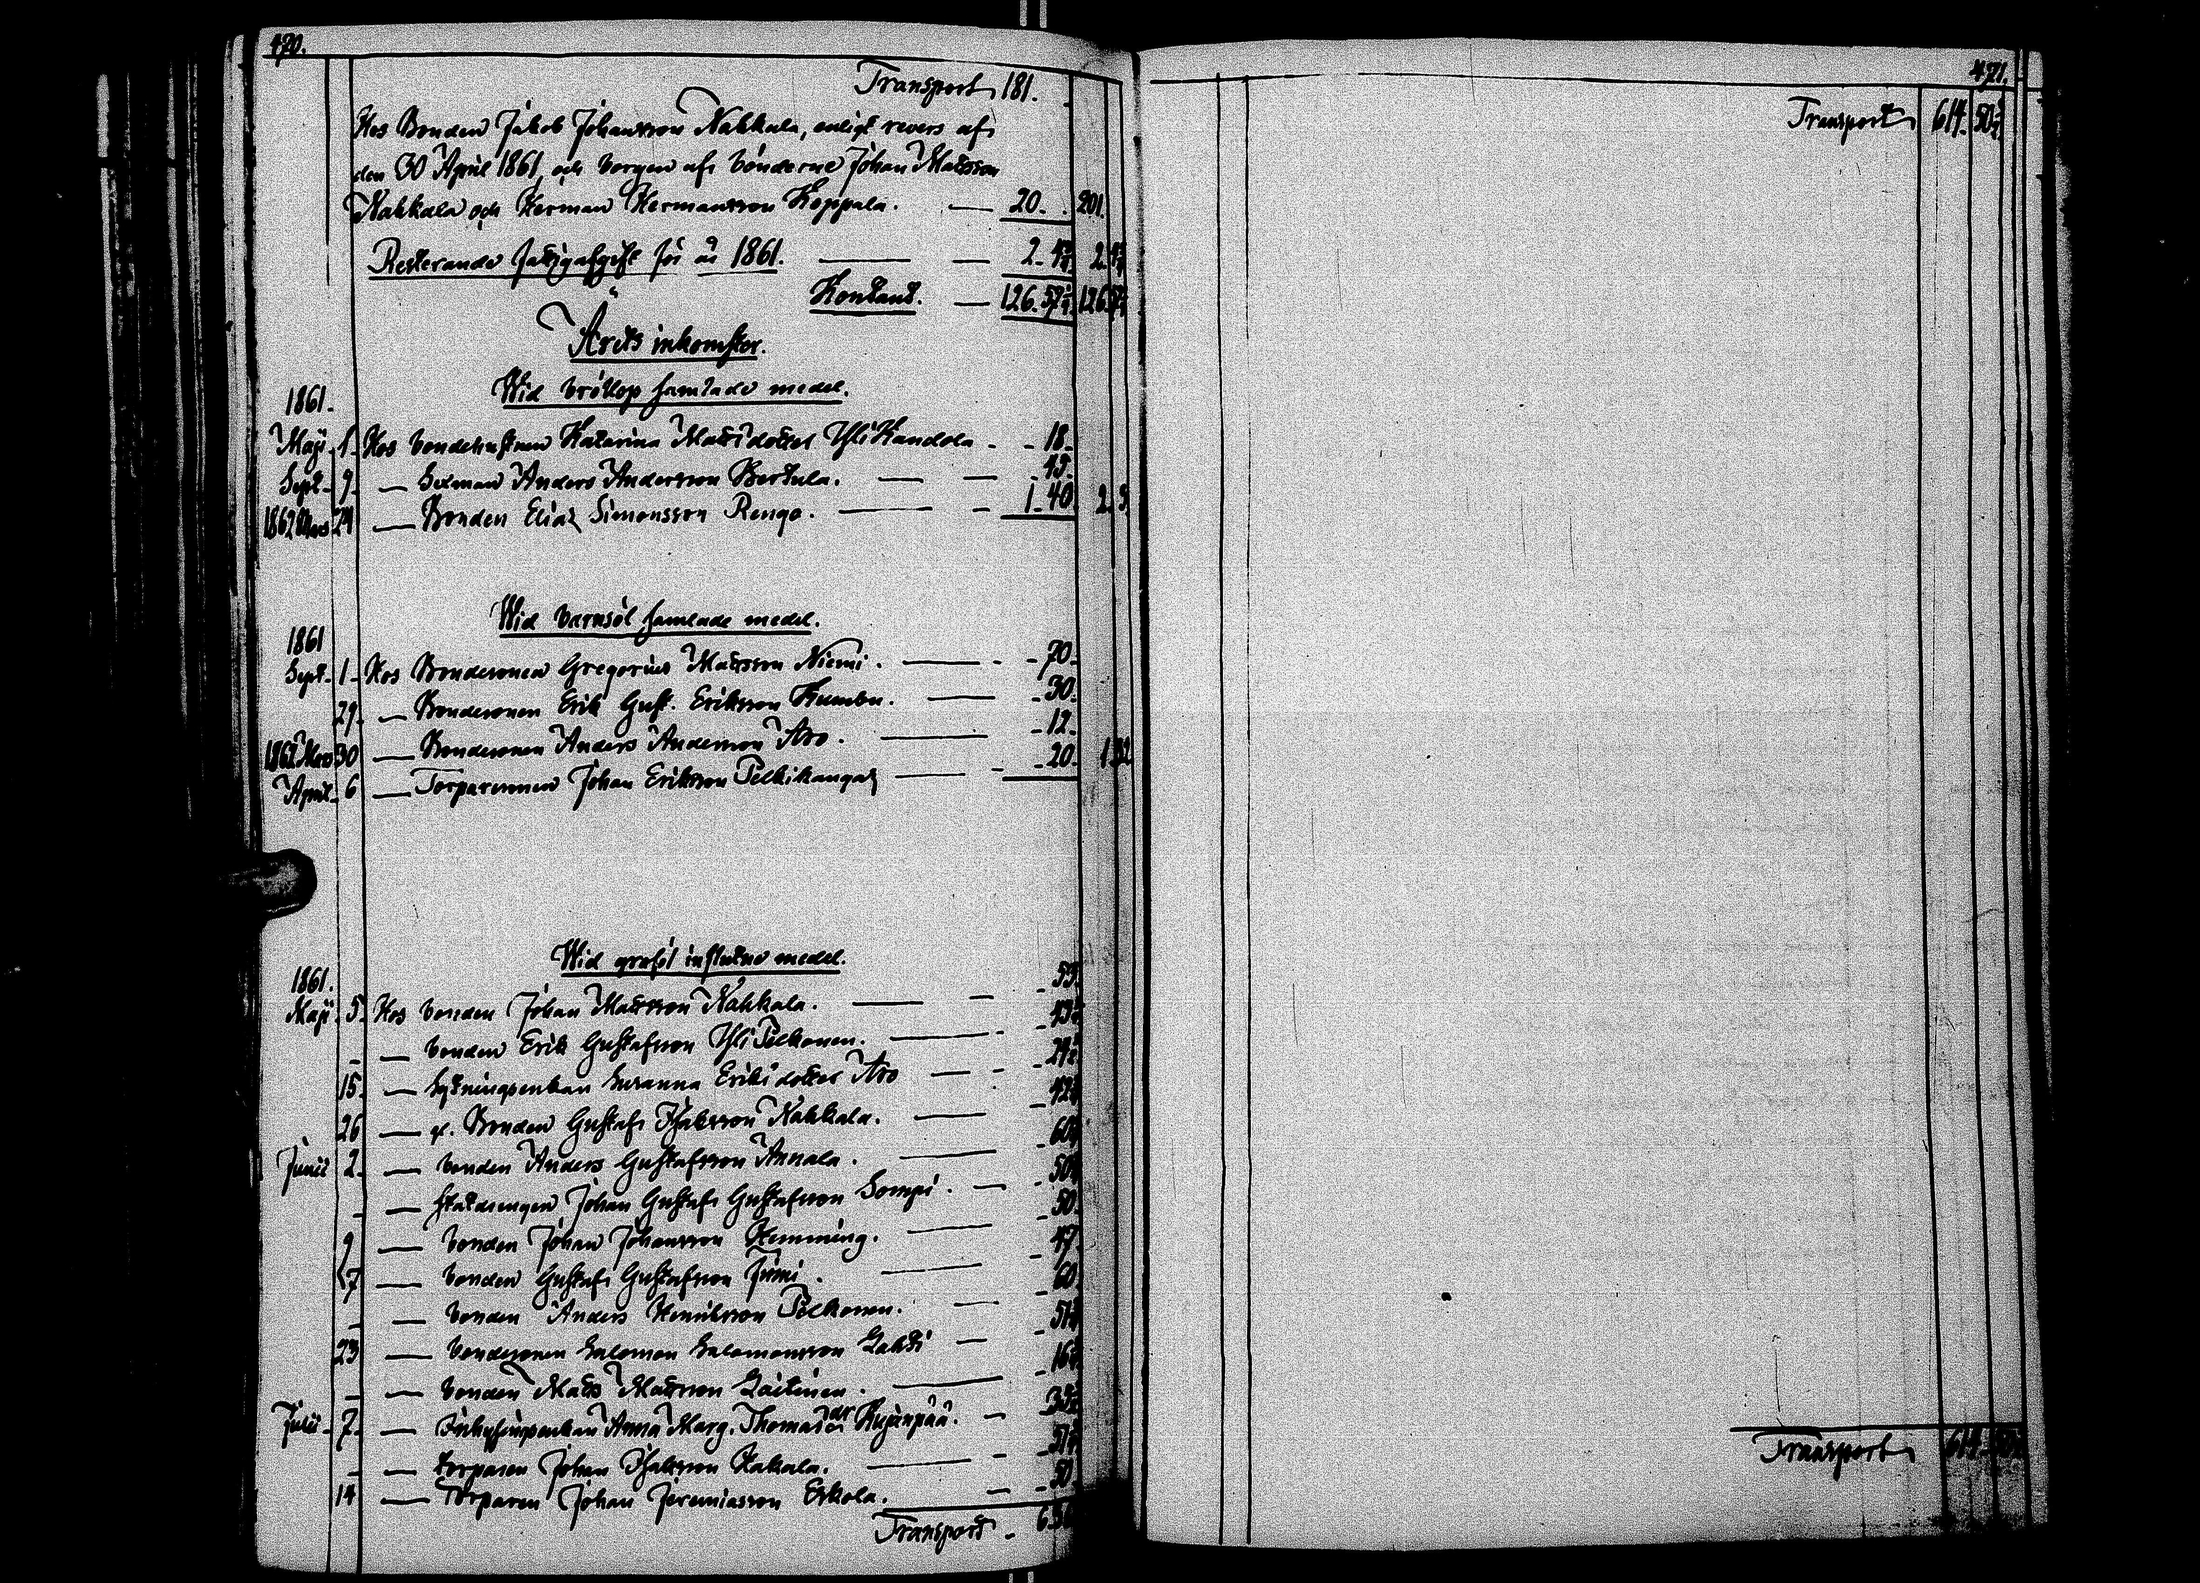 470.
Transport 181.
Hos Bonden Jakob Johansson Nahkala, enligt revers af
den 30 April 1861, och borgen af bönderne Johan Matsson
Nahkala och Herman Hermansson Koppala. — 20. 201.
Resterande fattigafgift för år 1861. — 2.
Kontant. — 126.57
Årets inkomster.
Wid bröllop samlade medel.
1861.
Maji 1 Hos bondehustrun Katarina Matsdotter YliKandola - 18.
Sept. 9 — Sexman Anders Andersson Bertula. — 45.
1862 Mars 24 — Bonden Elias Simonsson Rengo. — 1.40
Wid barnsöl samlade medel.
1861
Sept. 1 Hos Bondesonen Gregorius Matsson Niemi. — 70.
29 — Bondesonen Erik Gust. Eriksson Humbu. — 30.
1862 Mars 30 — Bondesonen Anders Andersson Aro. — 12.
April 6 — Torparemen Johan Eriksson Pelkikangas — 20.
Wid graföl influtne medel.
1861.
Maji 5 Hos bonden Johan Matsson Nahkala. — 55
— bonden Erik Gustafsson YliPelkonen. —
15 — Sytningsenkan Susanna Eriksdotter Aro —
26 — gl. Bonden Gustaf Isaksson Nahkala. —
Junii 2 — bonden Anders Gustafsson Annala. —
— statdrengen Johan Gustaf Gustafsson Sompi. —
9 — bonden Johan Johansson Hemming. — 50
— bonden Gustaf Gustafsson — 47
— bonden Anders Henriksson Pelkonen. — 60
23 — bondesonen Salomon Salomonsson Lahti —
— bonden Mats Matsson Laitinen. —
Julii 7 — Anna Marg. Thomasdr Kujanpää. —
— torparen Johan Isaksson Kakala. —
14 — Torparen Johan Jeremiasson Eskola. — 50
Transport -
471.
Transport 614. 50
Transport 614.